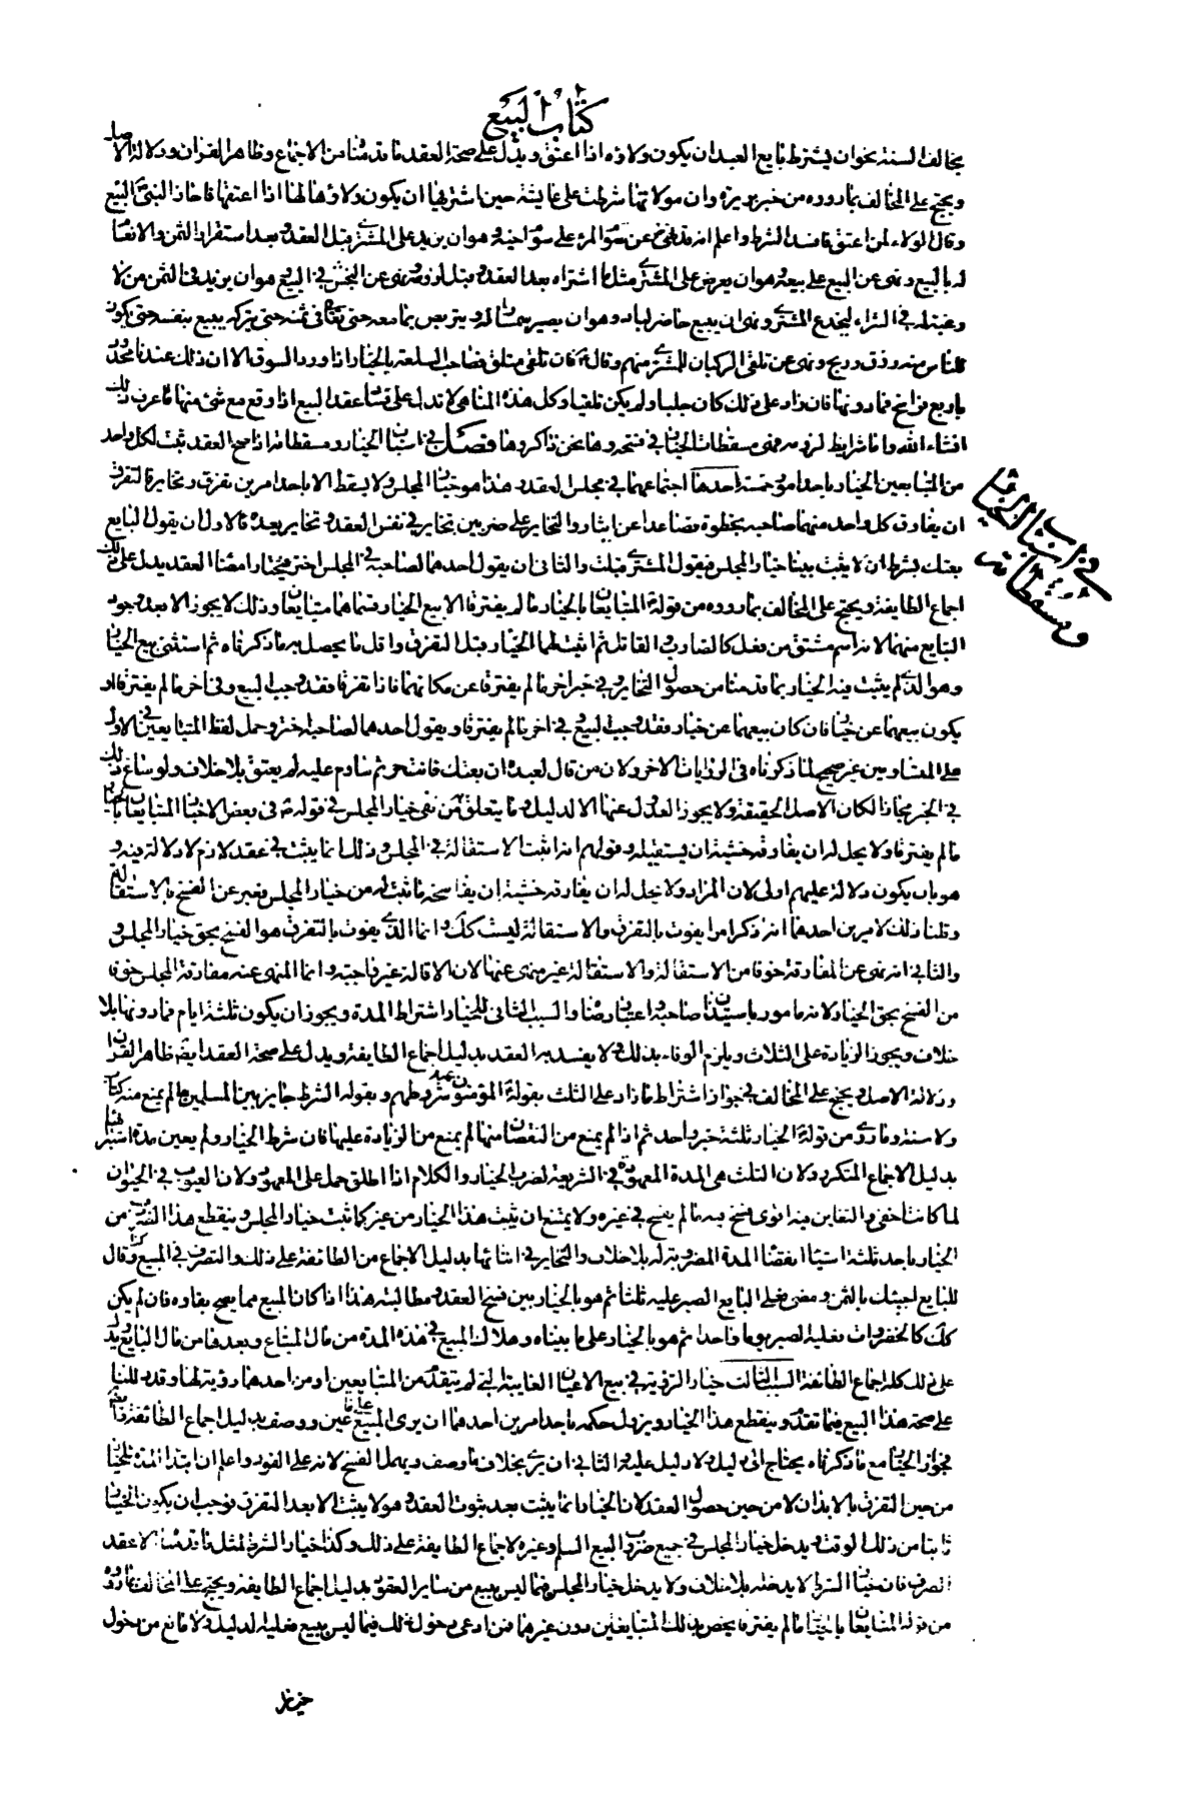 كتاب البيع
يخالف السنة نحو ان يشترط بايع العبد ان يكون ولاؤه اذا اعتق ويدل على صحة العقد ما قدمناه من الاجماع وظاهر القران ودلالة الاصل
ويحتج على المخالف بما رووه من خبر بريرة وان مولاتها شرطت على عايشة حين اشترتها ان يكون ولاؤها لها اذا اعتقتها فاجاز النبي البيع
وقال الولاء لمن اعتق فافسد الشرط واعلم انه قد نهى عن سوم المرء على سوم اخيه وهو ان يزيد على المشتري قبل العقد وبعد استقرار الثمن والانعام
له بالبيع ونهى عن البيع على بيعه وهو ان يعرض على المشتري مثل ما اشتراه بعد العقد وقبل لزومه ونهى عن النجش في البيع وهو ان يزيد في الثمن من لا
رغبة له في الشراء ليخدع المشتري ونهى ان يبيع حاضر لباد وهو ان يصير سمسارا له ويتربص بما معه حتى يغالى في ثمنه حتى يتركه يبيع بنفسه حتى يكون
للناس منه رزق وربح ونهى عن تلقى الركبان للشرى منهم وقال فان تلقى متلق فصاحب السلعة بالخيار اذا ورد السوق الا ان ذلك عندنا محدود
باربع فراسخ فما دونها فان زاد على ذلك كان جلبا ولم يكن تلقيا وكل هذه المناهى لا تدل على فساد عقد البيع اذا وقع مع شئ منها ما عرف ذلك
انشاء الله واما شرايط لزومه فهى مسقطات الخيار في فسخه وها نحن ذاكروها فصل في اسباب الخيار ومسقطاته اذا صح العقد ثبت لكل واحد
من المتبايعين الخيار باحد امور خمسة احدها اجتماعهما في مجلس العقد وهذا هو خيار المجلس ولا يسقط الا باحد امرين تفرق وتخاير فالتفرق
ان يفارق كل واحد منهما صاحبه بخطوة فصاعدا عن ايثار والتخاير على ضربين تخاير في نفس العقد وتخاير بعده فالاول ان يقول البايع
بعتك بشرط ان لا يثبت بيننا خيار المجلس فيقول المشترى قبلت والثانى ان يقول احدهما لصاحبه في المجلس اختر فيختار امضاء العقد يدل على ذلك
اجماع الطايفة ويحتج على المخالف بما رووه من قوله المتبايعان بالخيار ما لم يفترقا الا بيع الخيار فسماهما متبايعان وذلك لا يجوز الا بعد وجود
التبايع منهما لانه اسم مشتق من فعل كالضارب والقاتل ثم اثبت لهما الخيار قبل التفرق واقل ما يحصل به ما ذكرناه ثم استثنى بيع الخيار
وهو الذي لم يثبت فيه الخيار بما قدمنا من حصول التخاير وفي خبر اخر ما لم يفترقا عن مكانهما فاذا تفرقا فقد وجب البيع وفي اخر ما لم يفترقا او
يكون بيعهما عن خيار فان كان بيعهما عن خيار فقد وجب البيع وفي اخر ما لم يفترقا او يقول احدهما لصاحبه اختر وحمل لفظ المتبايعين في الاول
على المتساومين غير صحيح لما ذكرناه في الروايات الاخر ولان من قال لعبده ان بعتك فانت حر ثم ساوم عليه لم يعتق بلا خلاف ولو ساغ ذلك
في الخبر مجازا لكان الاصل الحقيقة ولا يجوز العدول عنها الا لدليل وما يتعلق به من نفى خيار المجلس في قوله في بعض الاخبار المتبايعان بالخيار
ما لم يفترقا ولا يحل له ان يفارقه خشية ان يستقيله وقولهم انه اثبت الاستقالة في المجلس وذلك انما يثبت في عقد لازم لا دلالة فيه و
هو بان يكون دلالة عليهم اولى لان المراد ولا يحل له ان يفارقه خشية ان يفاسخه ما ثبت له من خيار المجلس فعبر عن الفسخ بالاستقالة
وقلنا ذلك لامرين احدهما انه ذكر امرا يفوت بالتفرق والاستقالة ليست كك وانما الذي يفوت بالتفرق هو الفسخ بحق خيار المجلس و
والثانى انه نهى عن المفارقة خوفا من الاستقالة والاستقالة غير منهى عنها لان الاقالة غير واجبة وانما المنهى عنه مفارقة المجلس خوفا
من الفسخ بحق الخيار لانه مامور باستيذان صاحبه واعتبار رضاه والسبب الثانى للخيار اشتراط المدة ويجوز ان يكون ثلثة ايام فما دونها بلا
خلاف ويجوز الزيادة على الثلاث ويلزم الوفاء بذلك ولا يفسد به العقد بدليل اجماع الطايفة ويدل على صحة العقد ايضا ظاهر القران
ودلالة الاصل ويحتج على المخالف في جواز اشتراط ما زاد على الثلث بقوله المؤمنون عند شروطهم وبقوله الشرط جايز بين المسلمين ما لم يمنع منه كتاب
ولا سنة وما روى من قوله الخيار ثلثة خبر واحد ثم اذا لم يمنع من النقصان منها لم يمنع من الزيادة عليها فان شرط الخيار ولم يعين مدة
بدليل الاجماع المتكرر ولان الثلث هى المدة المعهودة في الشريعة لضرب الخيار والكلام اذا اطلق حمل على المعهود ولان العيوب في الحيوان
لما كانت اخفى والتغابن فيه اقوى فسخ فيه ما لم يفسح في غيره ولا يمتنع ان يثبت هذا الخيار من غير كما ثبت خيار المجلس وينقطع هذا الضرب من
الخيار باحد ثلثة اشياء انقضاء المدة المضروبة له بلا خلاف والتخاير في اثنائها بدليل الاجماع من الطائفة على ذلك والتصرف في المبيع وقال
للبايع اجيئك بالثمن ومضى فعلى البايع الصبر عليه ثلثا ثم هو بالخيار بين فسخ العقد ومطالبته هذا اذا كان المبيع مما يصح بقاوه فان لم يكن
كك كالخضروات فعليه الصبر يوما واحدا ثم هو بالخيار على ما بيناه وهلاك المبيع في هذه المدة من مال المبتاع وبعدها من مال البايع يدل
على ذلك كله اجماع الطائفة السبب الثالث خيار الرؤية في بيع الاعيان الغايبة التى لم يتقدم من المتبايعين او من احدهما رؤية لها وقد دللنا
على صحة هذا البيع فيما تقدم وينقطع هذا الخيار ويزول حكمه باحد امرين احدهما ان يرى المبيع على ما عين ووصف بدليل اجماع الطائفة
فجواز الخيار مع ما ذكرناه يحتاج الى دليل ولا دليل عليه والثانى ان يرى بخلاف ما وصف ويهمل الفسخ لانه على الفور واعلم ان ابتدا المدة للخيار
من حين التفرق بالابدان لا من حين حصول العقد لان الخيار انما يثبت بعد ثبوت العقد وهو لا يثبت الا بعد التفرق فوجب ان يكون الخيار
ثابتا من ذلك الوقت ويدخل خيار المجلس في جميع ضروب البيع السلم وغيره لاجماع الطايفة على ذلك وكذا خيار الشرط لمثل ما قدمناه الا عقد
الصرف فان خيار الشرط لا يدخله بلا خلاف ولا يدخل خيار المجلس فيما ليس ببيع من ساير العقود بدليل اجماع الطايفة ويحتج على المخالف بما رووه
من قوله المتبايعان بالخيار ما لم يفترقا يخص بذلك المتبايعين دون غيرهما فمن ادعى دخول ذلك فيما ليس ببيع فعليه الدليل ولا مانع من دخول
خيار
في اسباب الخيار
ومسقطاته